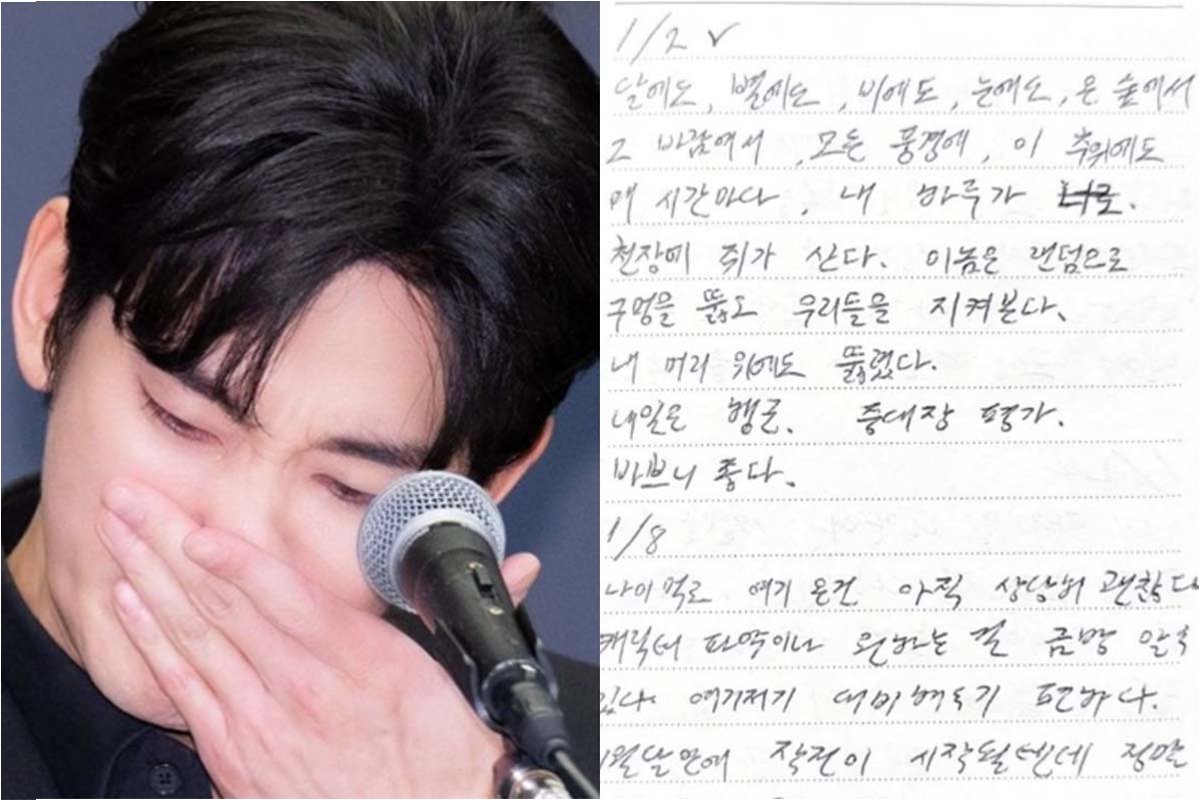 1/2 ✓
달에도, 별에도, 비에도, 눈에도, 온 숲에서
그 바람에서, 모든 풍경에, 이 추위에도
매 시간마다, 내 하루가 너로.
천장에 쥐가 산다. 이놈은 랜덤으로
구멍을 뚫고 우리들을 지켜본다.
내 머리 위에도 뚫렸다.
내일은 행군. 중대장 평가.
바쁘니 좋다.
1/8
나이먹고 여기 온건 아직 상당히 괜찮다
캐릭터 파악이나 원하는 걸 금방 알 수
있다. 여기저기 대비해두기 편하다.
1월달 안에 작전이 시작될텐데 정말